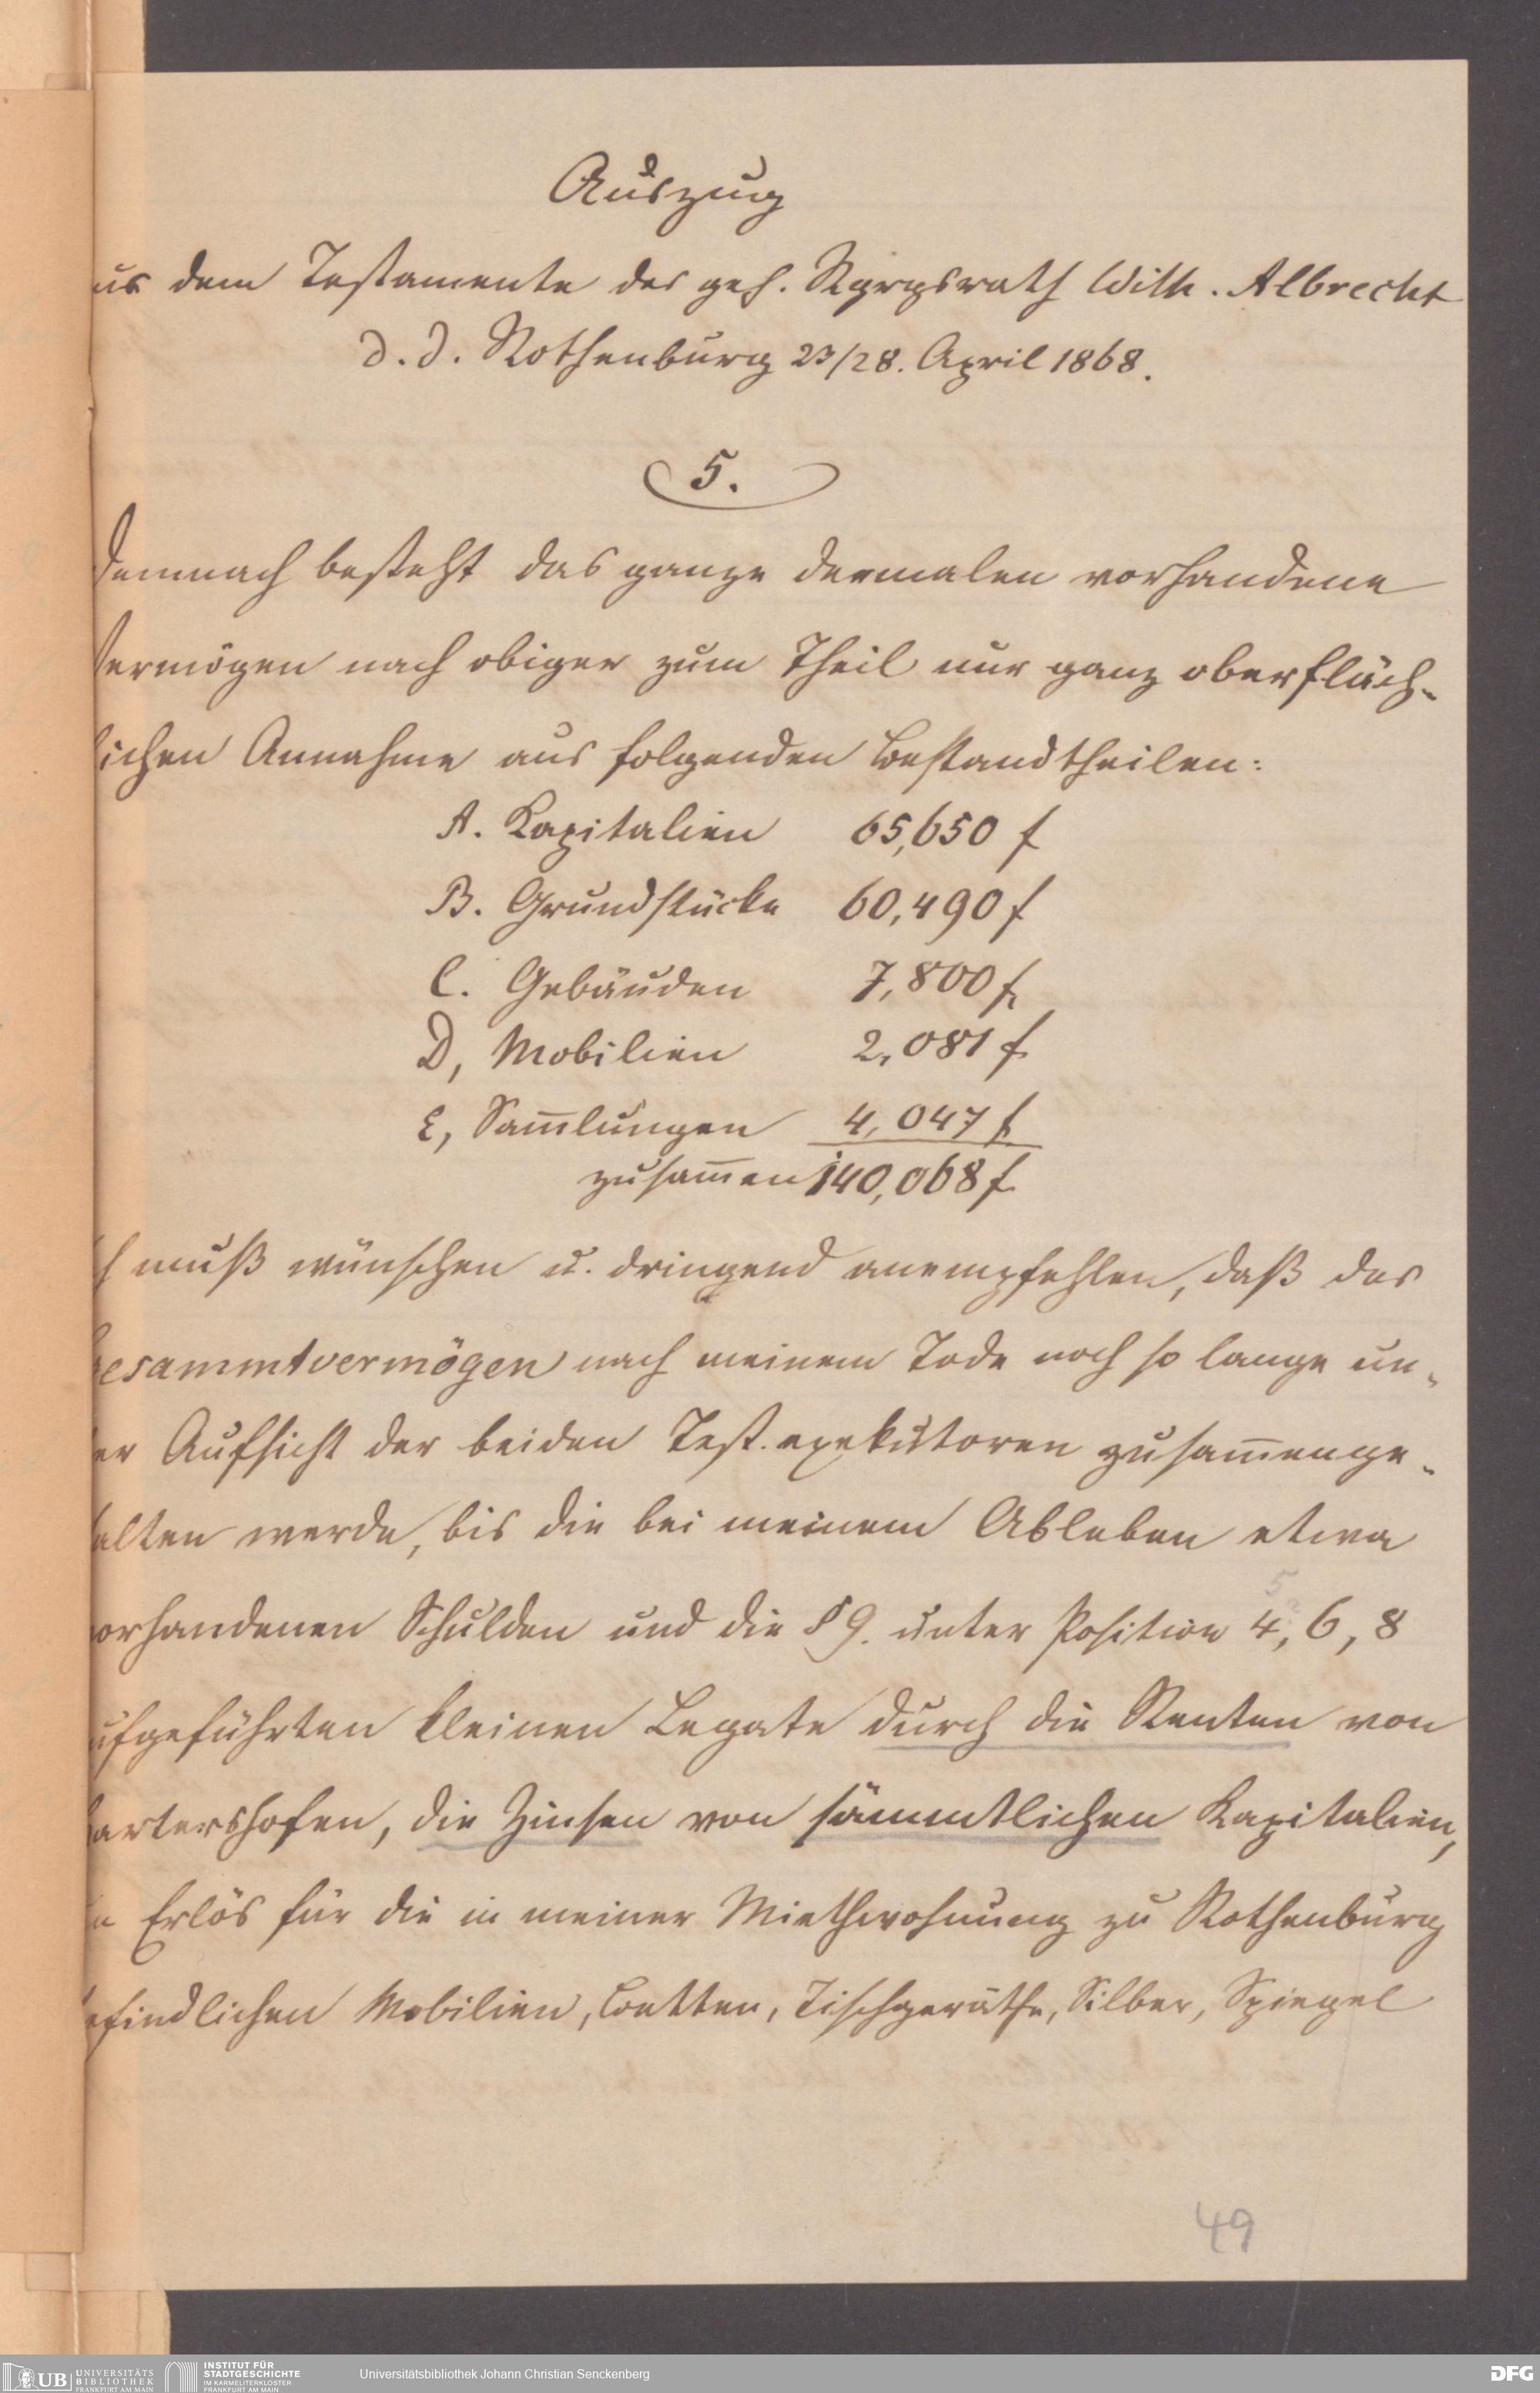 Auszug
us dem Testamente des geh. Rgrgsrath Wilh. Albrecht
d. d. Rothenburg 23/28. April 1868.
5.
Demnach besteht das ganze dermalen vorhandene
Vermögen nach obiger zum Theil nur ganz oberfläch-
lichen Annahme aus folgenden Bestandtheilen:
A. Kapitalien 65,650 f
B. Grundstücke 60,490 f
C. Gebäuden 7,800 f
D, Mobilien 2,081 f
E, Sam̅lungen 4,047 f
zusam̅en 140,068 f
h muß wünschen u. dringend anempfehlen, daß das
Gesammtvermögen nach meinem Tode noch so lange un-
ter Aufsicht der beiden Test. exekutoren zusam̅enge-
halten werde, bis die bei meinem Ableben etwa
vorhandenen Schulden und die § 9. unter Position 4, 6, 8
5
ufgeführten kleinen Legate durch die Renten von
artershofen, die Zinsen von sämmtlichen Kapitalien,
n Erlös für die in meiner Miethwohnung zu Rothenburg
efindlichen Mobilien, Betten, Tischgeräthe, Silber, Spiegel
49
UB UNIVERSITÄTS
BIBLIOTHEK
FRANKFURT AM MAIN
INSTITUT FÜR
STADTGESCHICHTE
IM KARMELITERKLOSTER
FRANKFURT AM MAIN
Universitätsbibliothek Johann Christian Senckenberg
DFG